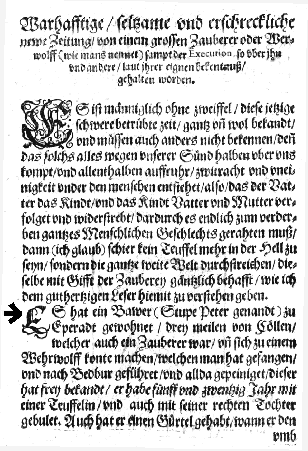 Warhafftige / seltzame vnd erschreckliche
newe Zeitung / von einem grossen Zauberer oder Wer-
wolff (wie mans nennet) sampt der Execution, so vber ihn
vnd andere / laut ihrer eignen bekentnuß /
gehalten worden.
ES ist männiglich ohne zweiffel / diese jetzige
schwere betrübte zeit / gantz vñ wol bekandt /
vnd müssen auch anders nicht bekennen / deñ
das solchs alles wegen vnserer Sünd halben vber vns
kompt / vnd allenthalben auffruhr / zwitracht vnd vnei-
nigkeit vnder den menschen entstehet / also / das der Vat-
ter das Kindt / vnd das Kindt Vatter vnd Mutter ver-
folget vnd widerstrebt / dardurch es endlich zum verder-
ben gantzes Menschlichen Geschlechts gerahten muß /
dann (ich glaub) schier kein Teuffel mehr in der Hell zu
seyn / sondern die gantze weite Welt durchstreichen / die-
selbe mit Gifft der Zauberey gäntlich behafft / wie ich
dem guthertzigen Leser hiemit zu verstehen geben.
ES hat ein Bawer (Stupe Peter genand) zu
Eperadt gewohnet / drey meilen von Cöllen /
welcher auch ein Zauberer war / vñ sich zu einem
Wehrwolff konte machen / welchen man hat gefangen /
vnd nach Bedbur geführet / vnd allda gepeiniget / dieser
hat frey bekandt / er habe fünff vnd zwentzig Jahr mit
einer Teuffelin / vnd auch mit seiner rechten Tochter
gebulet. Auch hat er einen Gürtel gehabt / wann er den
vmb